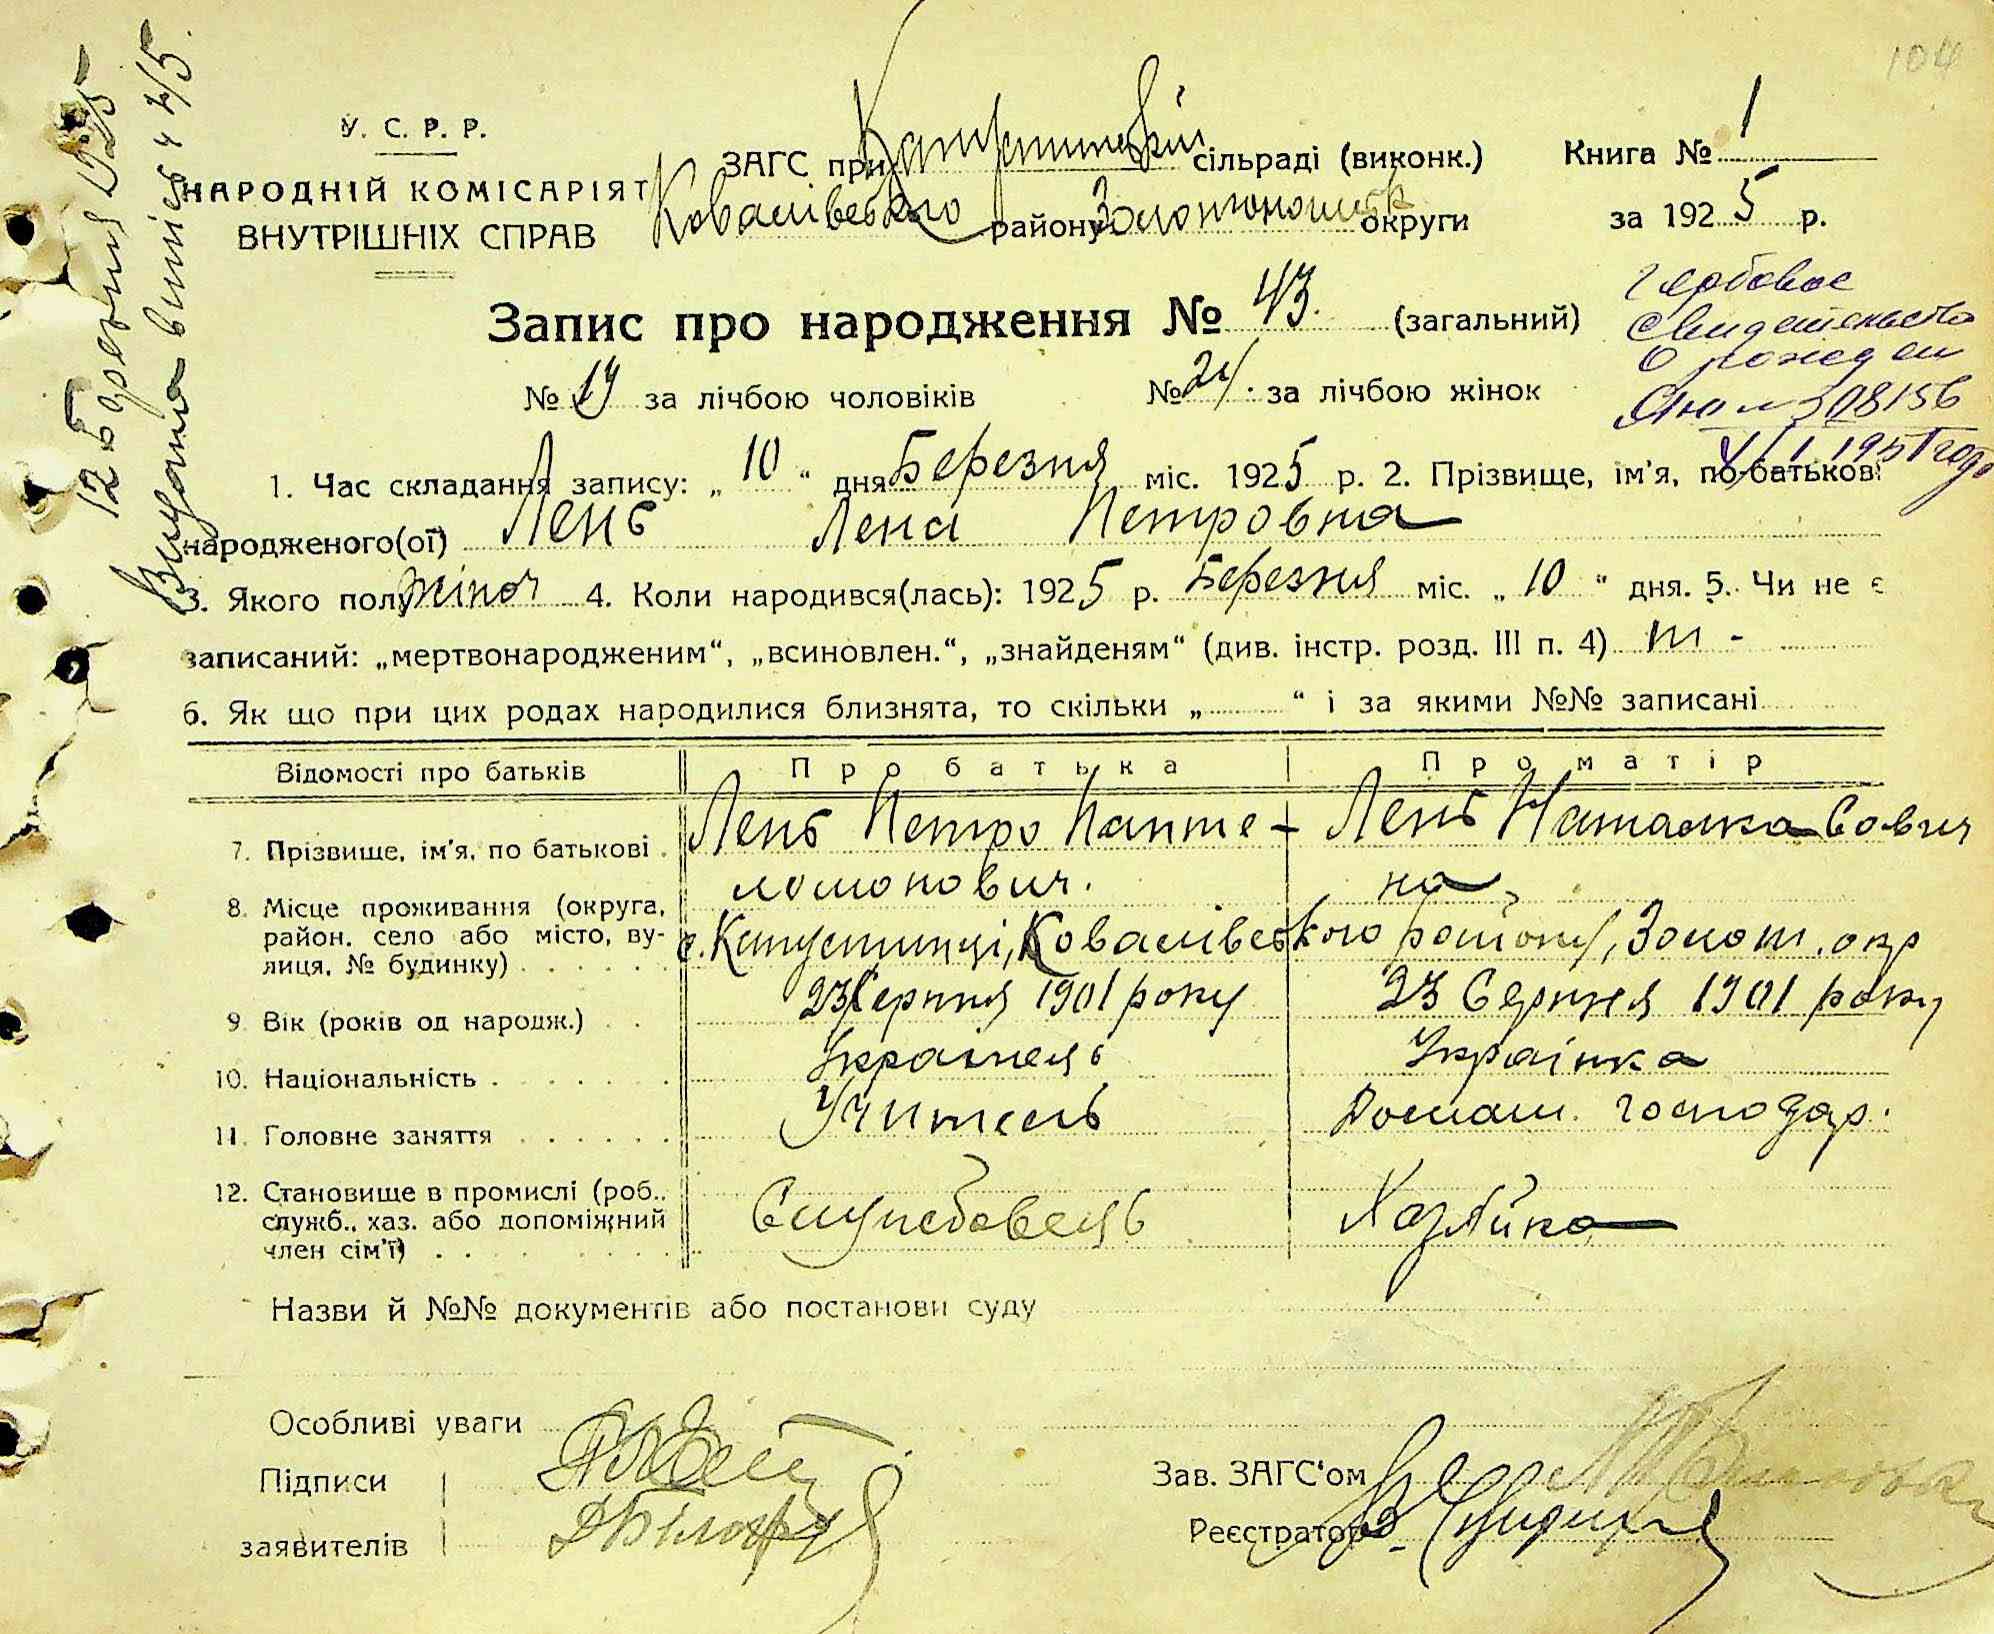 104
У. С. Р. Р.
НАРОДНІЙ КОМІСАРІЯТ
ВНУТРІШНІХ СПРАВ
ЗАГС при Капустинській сільраді (виконк.)
Ковалівського району Золотоношськ округи
Книга № 1
за 1925 р.
Запис про народження № 43. (загальний)
№ 19 за лічбою чоловіків № 24. за лічбою жінок
Гербовое
свидетельство
о рожден
№ 308156
1951 года
1. Час складання запису: „10“ дня Березня міс. 1925 р. 2. Прізвище, ім'я, по-батькові
народженого(ої) Лень Лена Петровна
3. Якого полу жіноч 4. Коли народився(лась): 1925 р. Березня міс. „10“ дня. 5. Чи не є
записаний: „мертвонародженим“, „всиновлен.“, „знайденям“ (див. інстр. розд. III п. 4)
6. Як що при цих родах народилися близнята, то скільки „ “ і за якими №№ записані
Відомості про батьків Про батька Про матір
7. Прізвище, ім'я, по батькові Лень Петро Панте-ломонович. Лень Наталка Советна
8. Місце проживання (округа, район, село або місто, вулиця, № будинку) с. Капустинці, Ковалівського району, Золот. окр
9. Вік (років од народж.) 23 Серпня 1901 року 23 Серпня 1901 року
10. Національність Українець Українка
11. Головне заняття Учитель Домаш. господар.
12. Становище в промислі (роб.. служб., хаз. або допоміжний член сім'ї) Службовець Хазяйка
Назви й №№ документів або постанови суду
Особливі уваги
Підписи
заявителів
Зав. ЗАГС'ом
Реєстратор